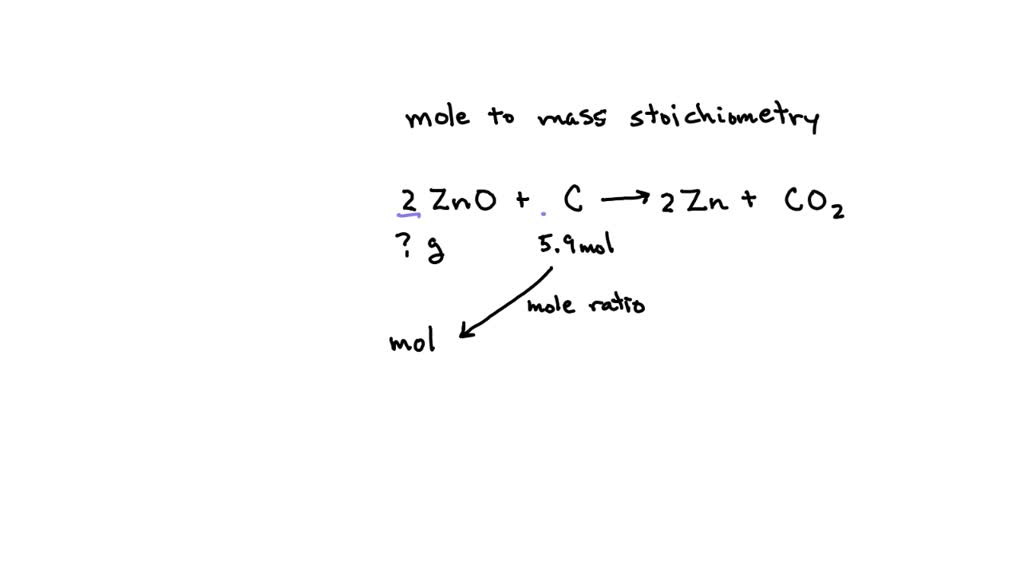 mole to mass stoichiometry
2 ZnO + C → 2 Zn + CO₂
? g 5.9 mol
mole ratio
mol